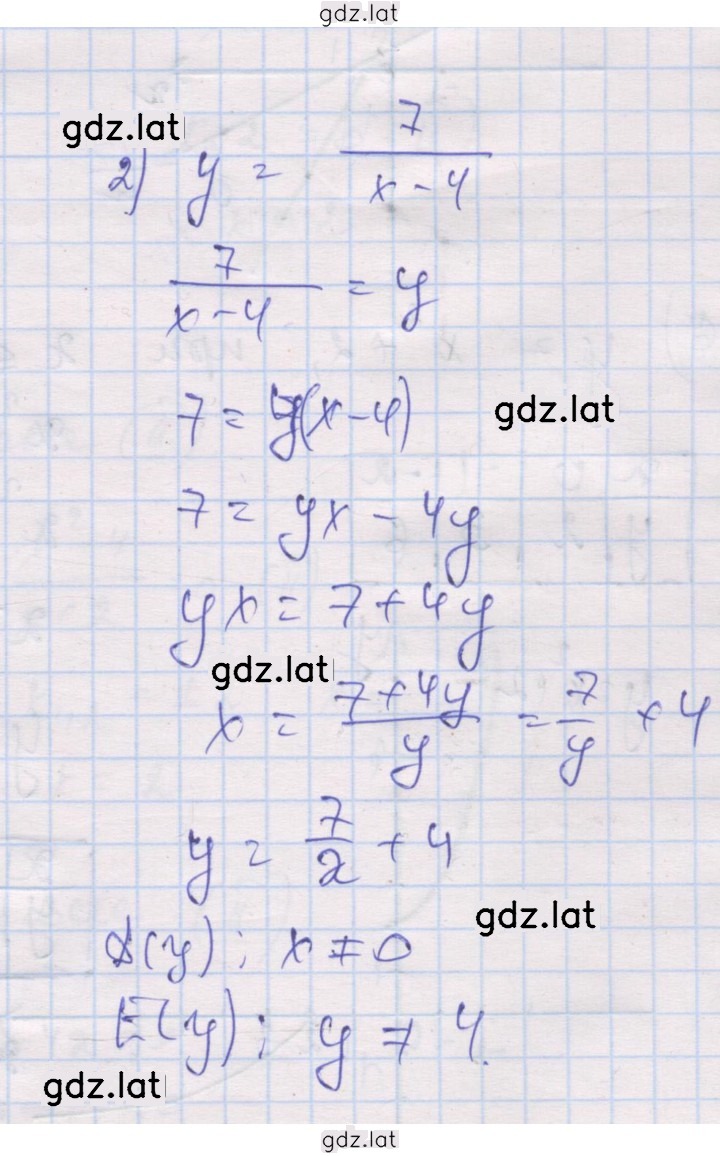 gdz.lat
gdz.lat
2) y = 7/(x-4)
7/(x-4) = y
7 = y(x-4) gdz.lat
7 = yx - 4y
yx = 7 + 4y
gdz.lat
x = (7+4y)/y = 7/y + 4
y = 7/x + 4
gdz.lat
D(y): x ≠ 0
E(y): y ≠ 4.
gdz.lat
gdz.lat